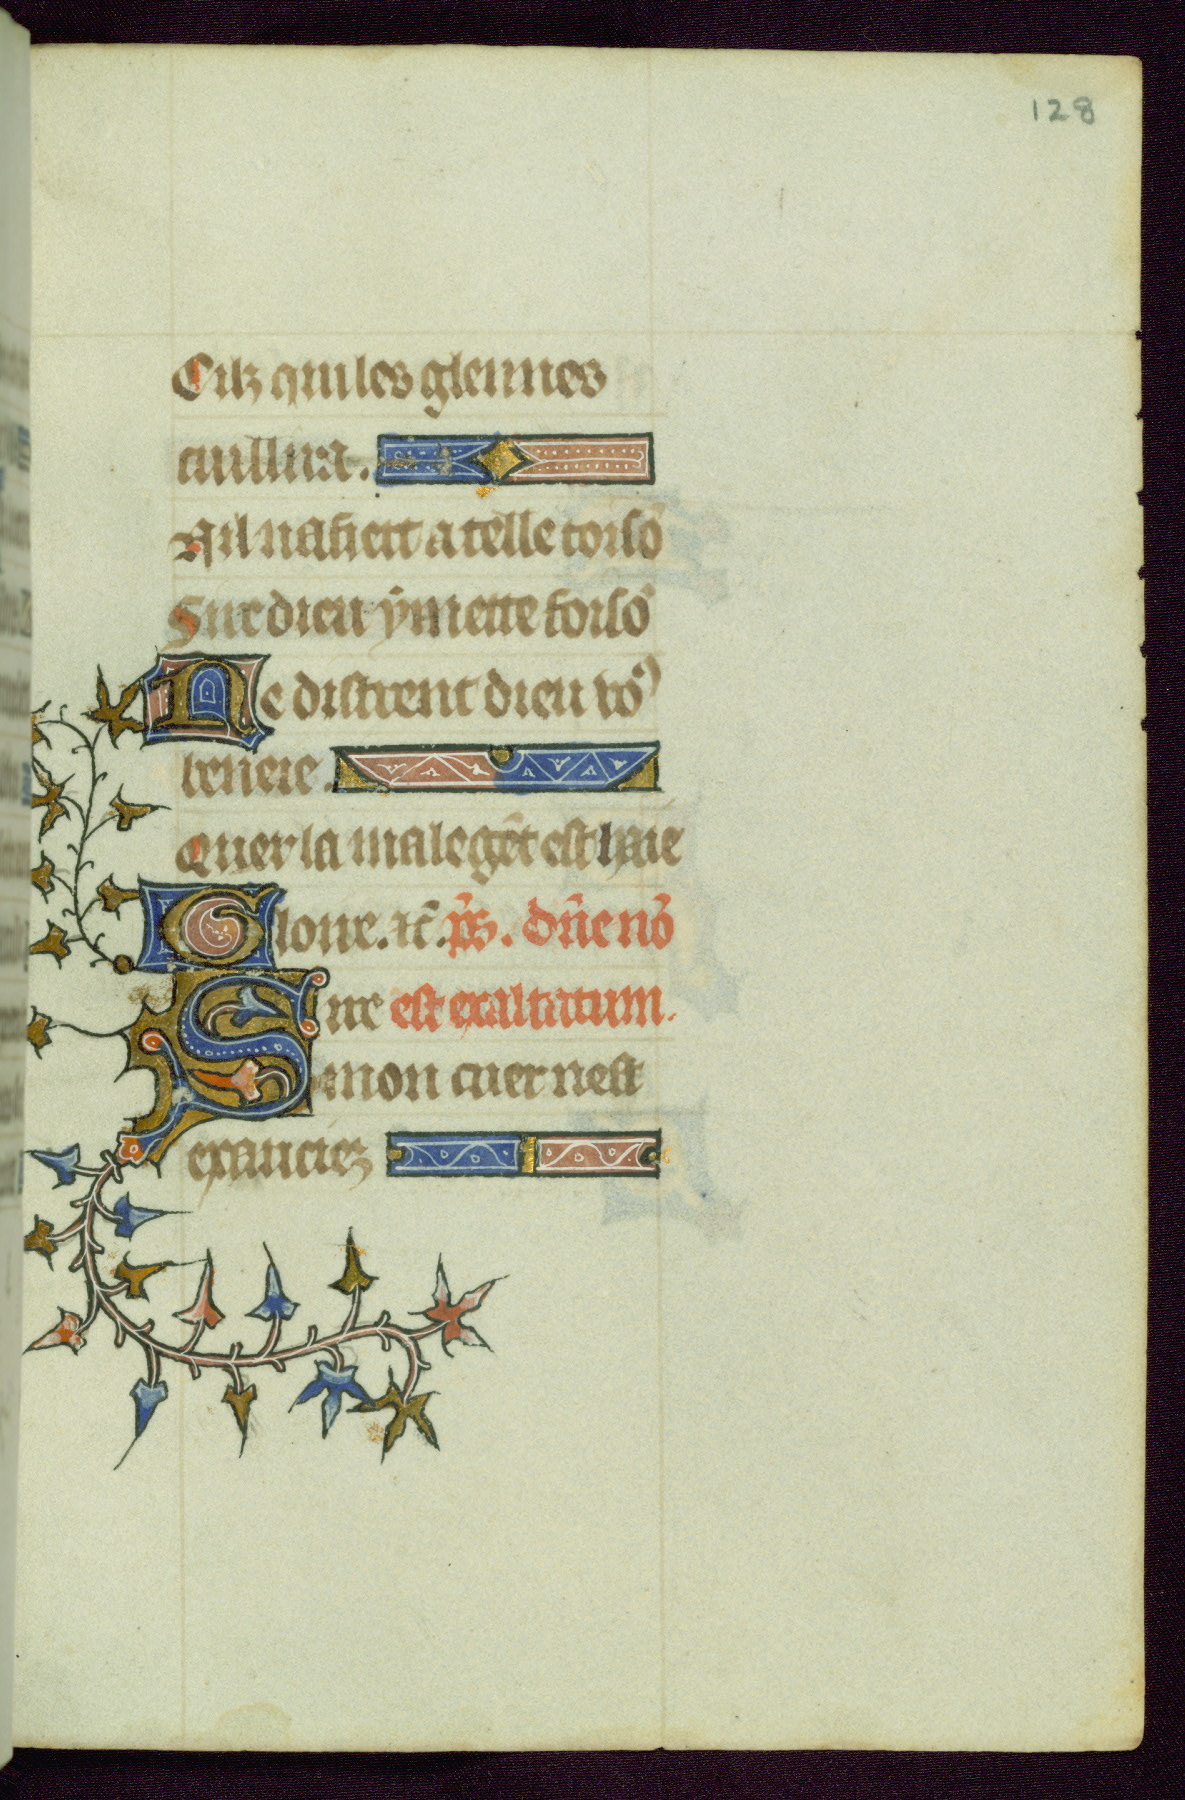 128
Cilz qui les glennes
cuillirt.
Ail nafiert a telle torsō
Sire dieu ẏ mette forsō
Ne distrent dieu vo⁹
beneie.
Quer la male gēt est haie
Gloire. ⁊c̄. p̄s. dn̄e nō
Sire est exaltatum.
mon cuer nest
exauciez